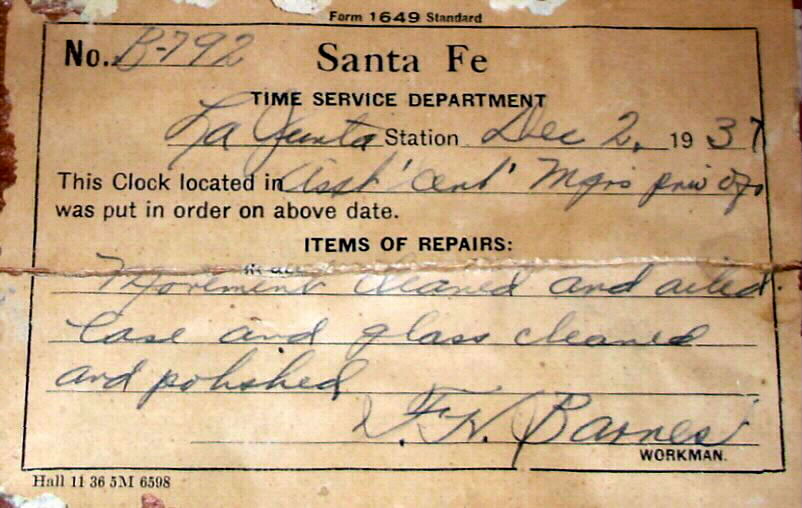 Form 1649 Standard
No. B-792 Santa Fe
TIME SERVICE DEPARTMENT
La Junta Station Dec 2, 1937
This Clock located in Asst' Genl' Mgrs priv ofs
was put in order on above date.
ITEMS OF REPAIRS:
Movement cleaned and oiled.
Case and glass cleaned
and polished
F. W. Barnes
WORKMAN.
Hall 11 36 5M 6598